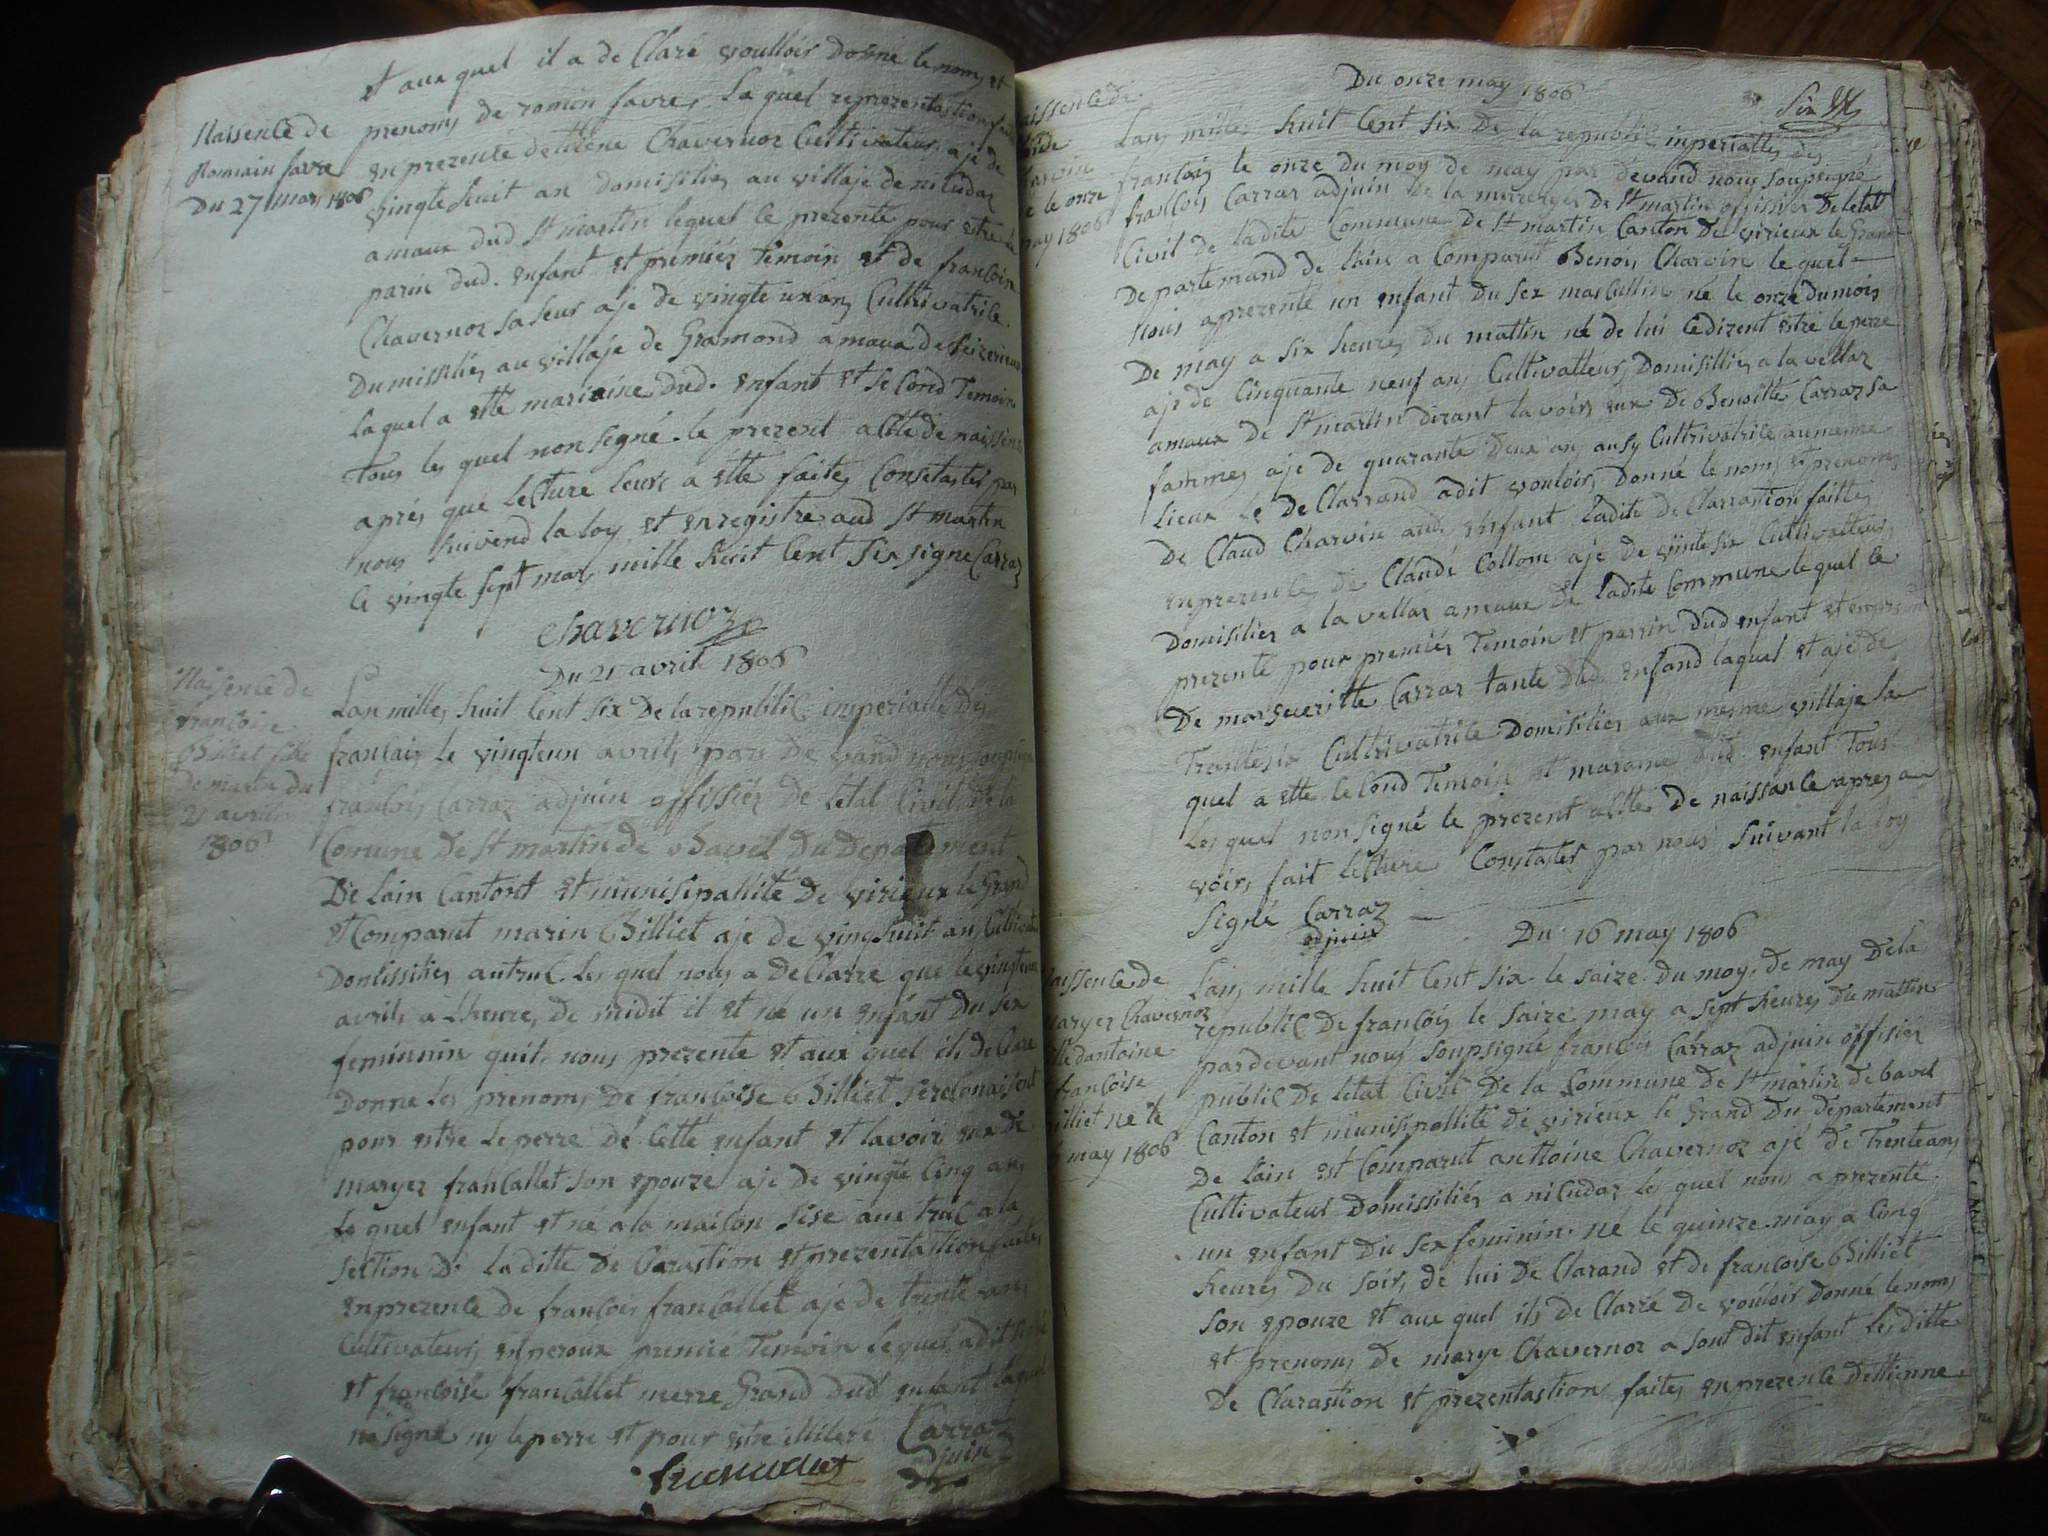 et aux quel il a de Claré voulloir Donné le nom, et
Naissence de
Romain favre
Du 27 mars 1806
prenoms de romin favre, La quel reprezentastion fait
en prezence dettiene Chavernoz Cultivateur aje de
vingte huit an domisiliés au villaje de nicudaz
amaux dud St martin lequel ce prezente pour estre le
parin dud. enfant et premiér temoin et de francoise
Chavernoz sa seur aje de vingte un an, Cultivatrice
Dumissiliés au villaje de Gramond amaux de Seizerieux
laquel a ette maraine dud. enfant et second Temoin
tous les quel non signé. le prezent actte de naissence
aprés que lecture leurs a ette faite, Constastés par
nous suivend la loy et enregistre aud St martin
le vingte sept mars mille huit Cent Six signe Carraz
Chavernoz
Du 21 avril 1806
Naisence de
francoise
Billiet fille
de martin du
21 avril
1806
Lan mille, huit Cent Six De la republic imperialle des
francais le vingteun avril, par De vand nous soupsigné
francois Carraz adjuin offissiér De letat Civil De la
Comune De St martin de Bavel Du Departement
De Lain Canton et munisipallité De virieux le Grand
et Comparut marin Billiet aje De ving huit an, Cultivateur
Domissiliés autruc. les quel nous a De Clarre que le vingteun
avril, a Lheure, De midit il et né un enfant Du sex
feminnin quil, nous prezente et aux quel il, de Clare
Donne les prenom, De francoise Billiet se reconaisent
pour estre Le perre De Cette enfant et lavoir eux de
maryez francallet son epouze aje De vingte Cinq an,
le quel enfant et né a la maison sise aux truc a la
section De La ditte De Clarastion et prezentastion faite,
en prezence de francois francallet aje de trente an,
Cultivateur, en peroux premié Temoin lequel a dit
et francoise francallet merre Grand dud enfant laquel
na signé ny le perre et pour estre illiteré Carraz
adjuin
francallet
Du onze may 1806
Six
naissence de
Charvin
né le onze
may 1806
Lan, mille, huit Cent Six De la republic imperialle, des
francois le onze Du moy de may par devand nous soupsigné
francois Carraz adjuin De la mairerye De St martin offissier De letat
Civil de ladite Commune De St martin Canton De virieux le Grand
Departemand de Lain a Comparut Benois Charvin le quel
Nous aprezenté un enfant Du sex mascullin né le onze du mois
De may a six heures Du mattin né de lui Ce dizent estre le perre
aje de Cinquante neuf an, Cultivatteur, Domisilliés a la vellaz
amaux De St martin Dizant lavoir eux De Benoitte Carraz sa
famme, aje de quarante Deux an, ausy Cultivatrice aumesme
Lieux Le De Clarrand adit vouloir, Donné le nom, et prenoms
De Claud Charvin aud. enfant Ladite De Clarrastion faitte,
enprezence, de Claude Collom aje de vinte six Cultivatteur,
Domisiliés a la vellaz amaux De Ladite Commune lequel Ce
prezente pour premiér Temoin et parrin Dud enfant et en prezence
De marguerite Carraz tante Dud. enfand laquel et aje de
Trante six Cultivatrice Domisiliés aux mesme villaje La
quel a ette le cond Temoin et maraine dud. enfant Tous
Les quel non signé le prezent actte De naissance apres a
voir, fait lecture Constastes par nous suivant la loy
Signé Carraz
adjuin
Du 16 may 1806
naissence de
maryez Chavernoz
fille dantoine
francoise
Billiet né le
may 1806
Lan, mille huit Cent six le saize du moy, de may De la
republic De francois le saize may a sept heures du mattin
pardevant nous soupsigné francois Carraz adjuin offisiér
public De letat Civil De la Commune de St martin de bavel
Canton et munisipallité de virieux le Grand Du departement
De lain est Comparut anttoine Chavernoz ajé De Trente an,
Cultivateur Domissiliés a nicudaz les quel nous a prezenté
un enfant Du sex feminin. né le quinze may a Cinq
heures Du soir, de lui De Clarand et de francoise Billiet
son epouze et aux quel il, de Clarré De vouloir donné le nom,
et prenoms De marye Chavernoz a sont dit enfant Les ditte
De Clarastion et prezentastion, faite, en prezence Dettienne